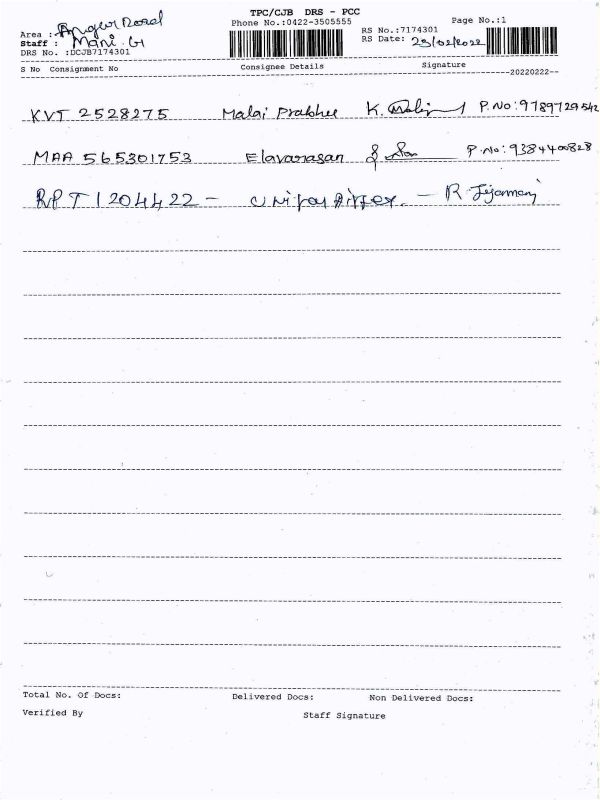 TPC/CJB DRS - PCC
Phone No.:0422-3505555
Page No.:1
Area : Road
Staff : Mani. G
DRS No. :DCJB7174301
RS No.:7174301
RS Date: 23/02/2022
S No Consignment No Consignee Details Signature
20220222
KVT 2528275 Malai Prabhu K. P.No:9789729542
MAA 565301753 Elavarasan P.No:9384400828
RPT 1204422 - - R
Total No. Of Docs: Delivered Docs: Non Delivered Docs:
Verified By Staff Signature